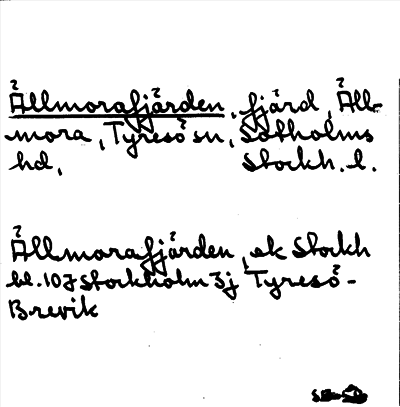 Ällmorafjärden, fjärd, Äll-
mora, Tyresö sn, Sotholms
hd, Stockh. l.
Ällmorafjärden, ek Stockh
bl. 10J Stockholm 3j Tyresö-
Brevik